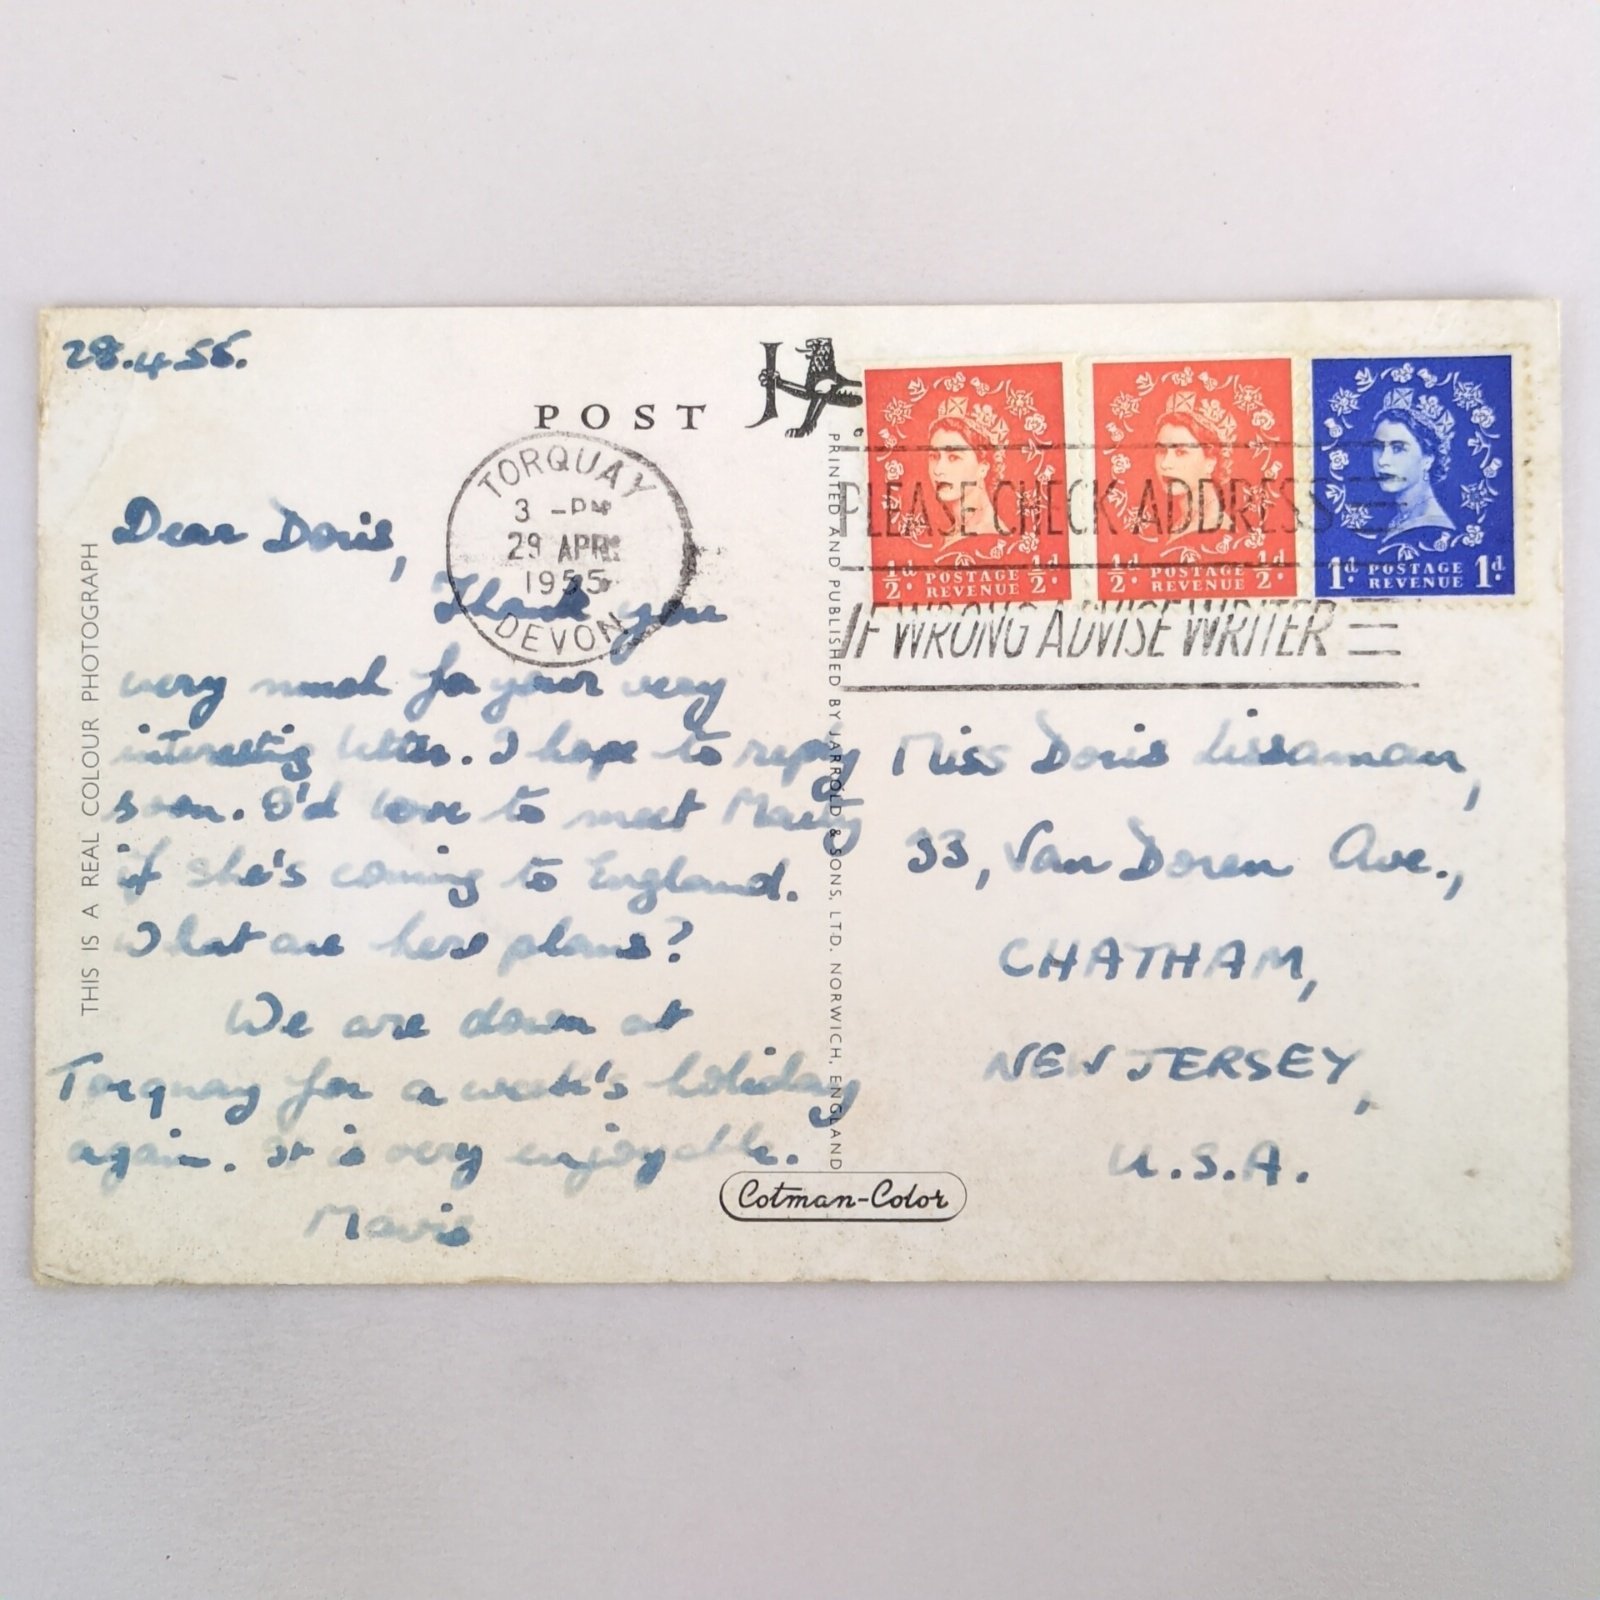 28.4.55.
POST
TORQUAY
3 - PM
29 APR
1955
DEVON
PLEASE CHECK ADDRESS
IF WRONG ADVISE WRITER
½d. POSTAGE REVENUE ½d.
½d. POSTAGE REVENUE ½d.
1d. POSTAGE REVENUE 1d.
THIS IS A REAL COLOUR PHOTOGRAPH
Dear Doris,
Thank you
very much for your very
interesting letter. I hope to reply
soon. I'd love to meet
if she's coming to England.
What are her plans?
We are down at
Torquay for a week's holiday
again. It is very enjoyable.
Mavis
PRINTED AND PUBLISHED BY JARROLD & SONS, LTD. NORWICH, ENGLAND
Cotman-Color
Miss Doris Lissaman,
33, Van Doren Ave.,
CHATHAM,
NEW JERSEY,
U.S.A.